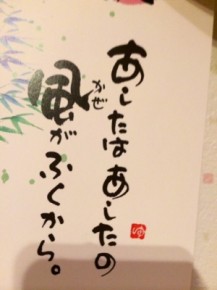 あしたはあしたの
風がふくから。
かぜ